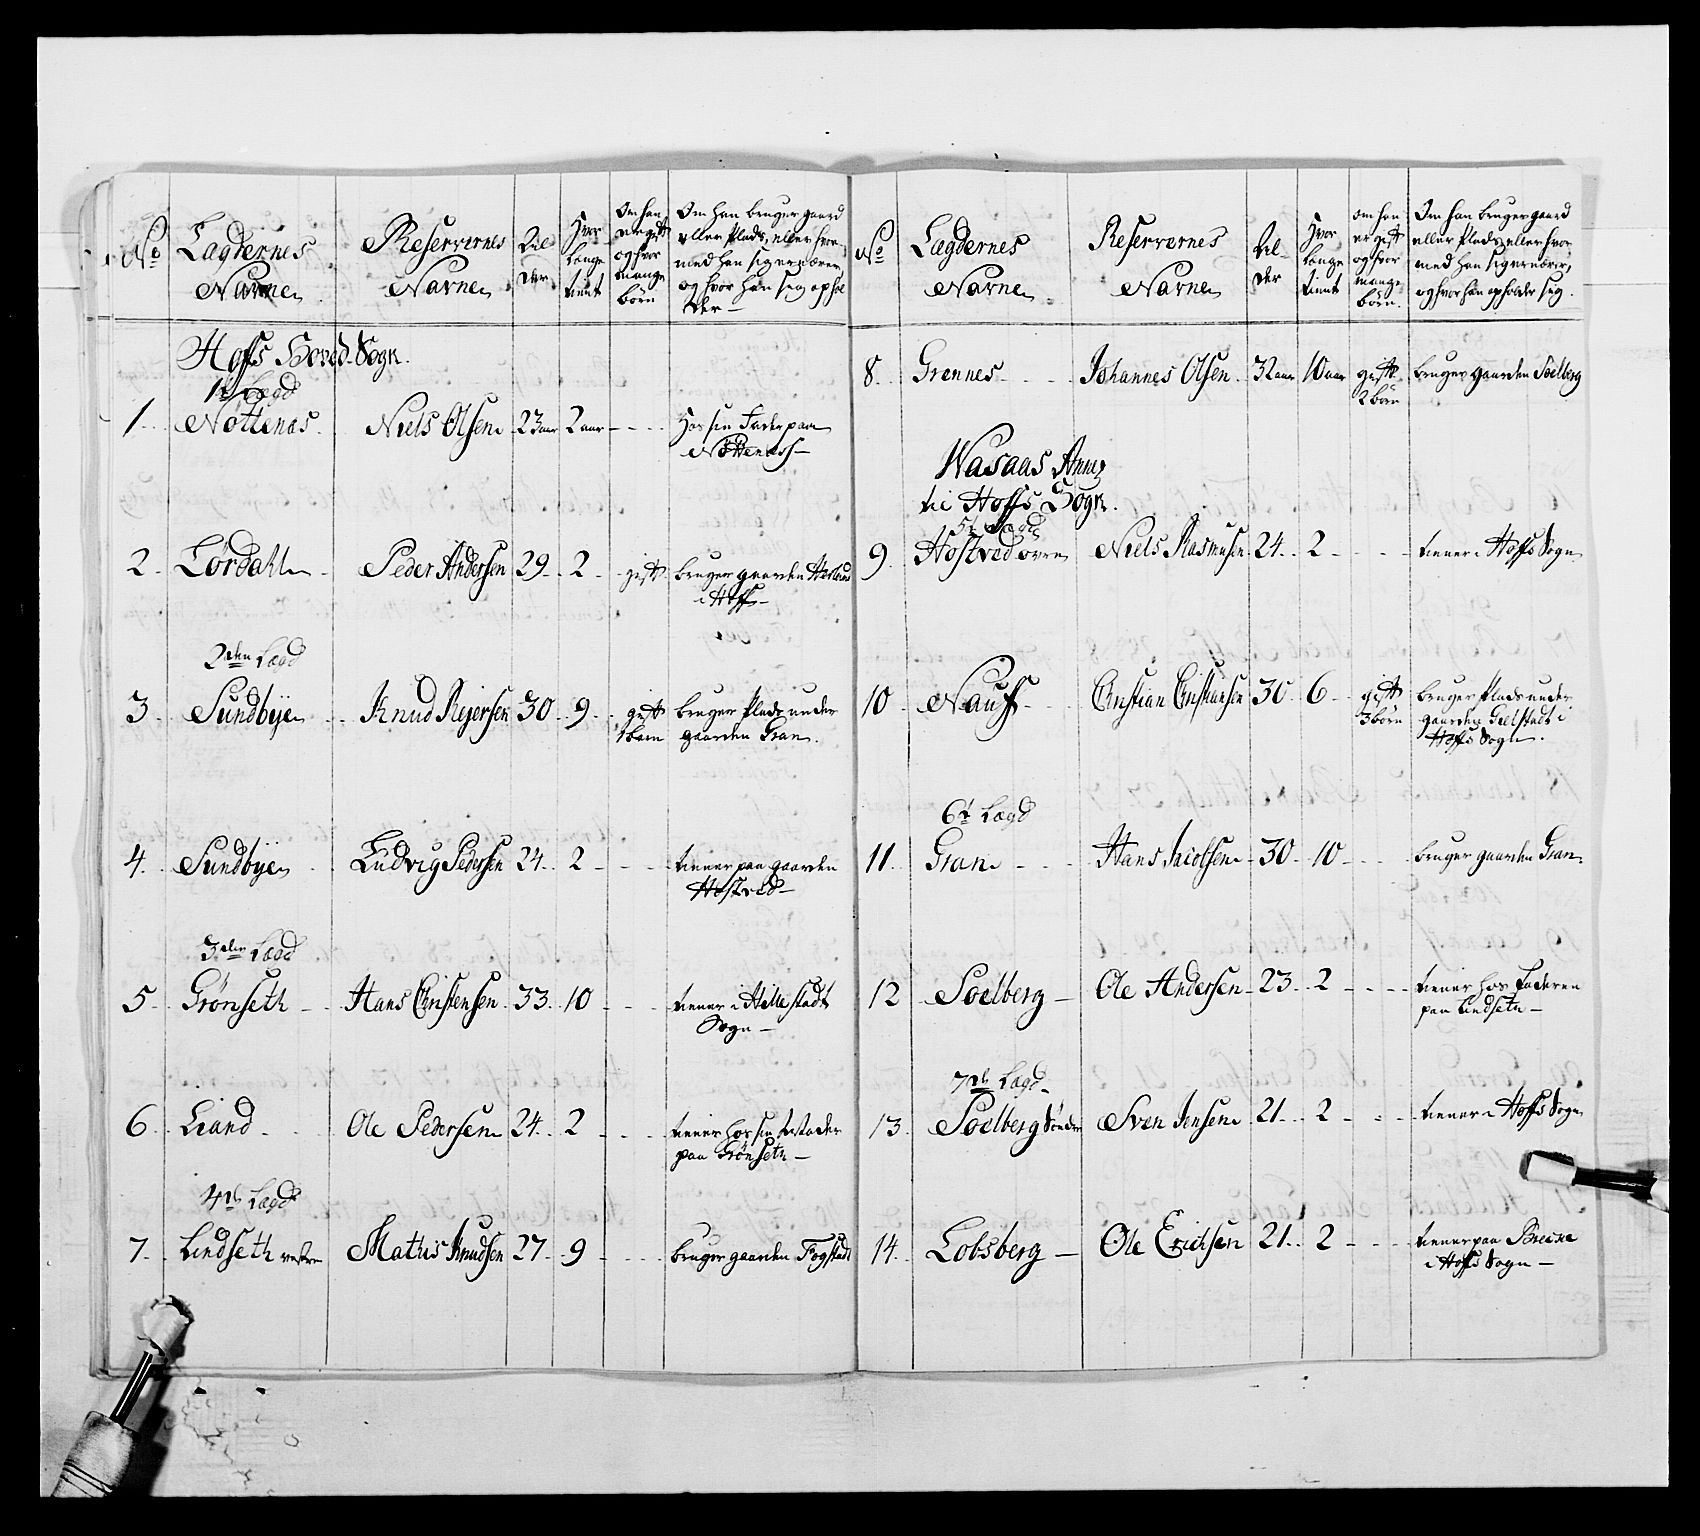 No
Lægdernes
Navne
Reservernes
Navne
Al
der
Hvor
længe
tient
Om han
er gift
og hvor
mange
börn
Om han bruger gaard
eller Plads, eller hvor
med han sig ernærer,
og hvor han sig ophol
der —
Hoffs Hoved Sogn.
1te Lægd
1. Nöttenæs. Niels Olsen 23 aar 2 aar - - - Hos sin Fader paa
Nöttenæss —
2. Lördahl Peder Andersen 29. 2. gift bruger gaarden
i Hoff —
2den Lægd
3. Sundbÿe Knud Rejersen 30. 9. gift bruger Plads under
1 barn gaarden Gran.
4. Sundbÿe Ludvig Pedersen 24. 2 - - - tiener paa gaarden
Hostved —
3die Lægd
5. Grönseth Hans Christensen 33. 10 - - - tiener i Hillestadt
Sogn —
6. Liand Ole Pedersen 24. 2 - - - tiener hos sin
paa Grönseth —
4de Lægd
7. Lindseth vestre Mathis Knudsen 27. 9 - - - bruger gaarden Fogstad
No
Lægdernes
Navne
Reservernes
Navne
Al
der
Hvor
længe
tient
om han
er gift
og hvor
mange
börn.
Om han bruger gaard
eller Plads, eller hvor
med han sig ernærer,
og hvor han opholder sig.
8. Grennes Johannes Olsen. 32 aar 10 aar gift bruger gaarden Soelberg
2 börn
Wasaas Annex
til Hoffs Sogn.
5te Lægd
9. Hostved övre Niels Rasmusen 24. 2 - - - tiener i Hoffs Sogn
10. Nauf Christian Christiansen 30. 6 gift bruger Plads under
3 börn gaarden Gulstadt i
Hoffs Sogn.
6te Lægd
11. Gran Hans Nielsen 30. 10 - - - bruger gaarden Gran.
12 Soelberg — Ole Andersen 23. 2 - - - tiener hos Faderen
paa Lindseth —
7de Lægd
13. Soelberg Söndre Sven Jensen 21. 2 - - - tiener i Hoffs Sogn
14. Lobsberg — Ole Erichsen 21. 2 - - - tiener paa
i Hoffs Sogn —